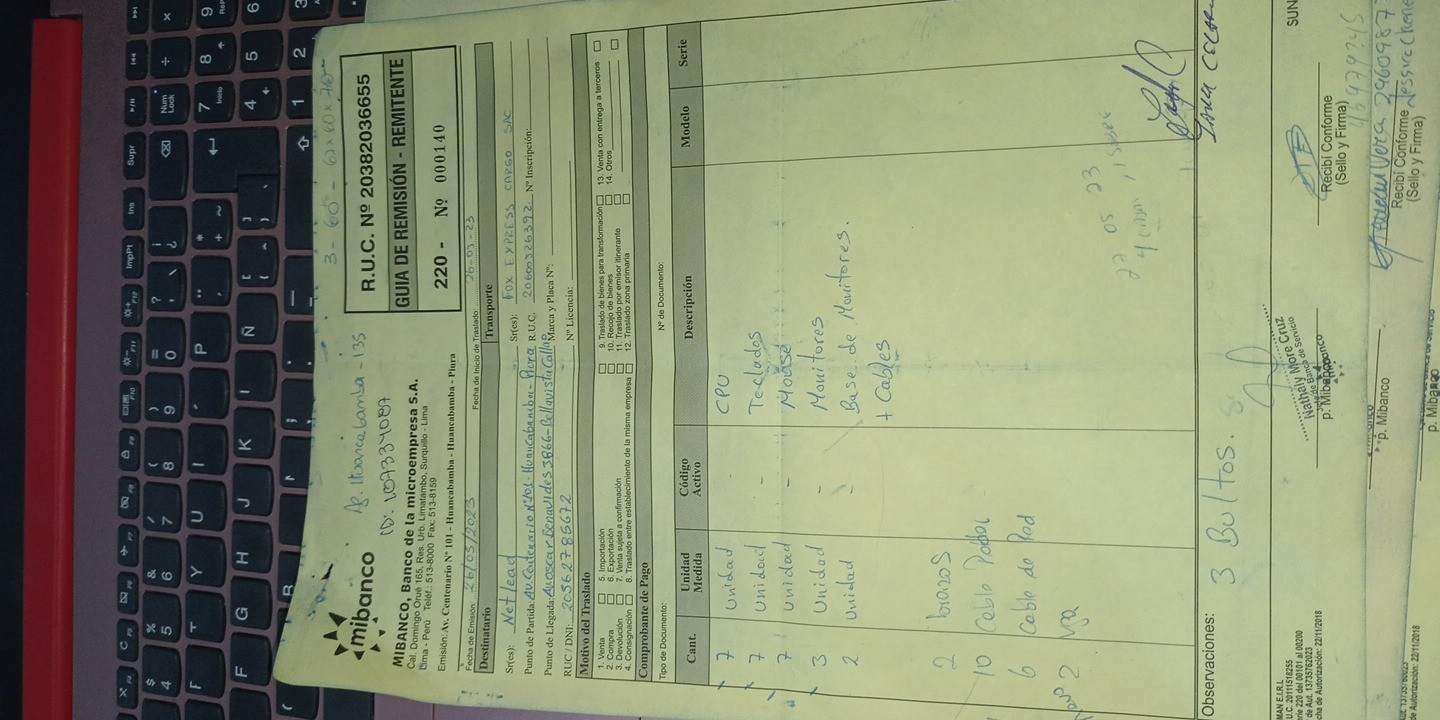 3 - 60 - 60x60x70
Ag. Huancabamba - 135
ID: 107334087
mibanco
MIBANCO, Banco de la microempresa S.A.
Cal. Domingo Orué 165, Res. Urb. Limatambo, Surquillo - Lima
Lima - Perú Teléf.: 513-8000 Fax: 513-8159
Emisión: Av. Centenario Nº 101 - Huancabamba - Huancabamba - Piura
R.U.C. Nº 20382036655
GUIA DE REMISIÓN - REMITENTE
220 - Nº 000140
Fecha de Emisión: 26/05/2023
Fecha de Inicio de Traslado: 26-05-23
Destinatario
Transporte
Sr(es): Netlead
Sr(es): FOX EXPRESS CARGO SAC
Punto de Partida: AV. Centenario Nº 101 - Huancabamba - Piura
R.U.C. 20600326392 Nº Inscripción:
Punto de Llegada: Av. Oscar Benavides 3866 - Bellavista Callao
Marca y Placa Nº:
RUC / DNI: 20562785672
Nº Licencia:
Motivo del Traslado
1. Venta
2. Compra
3. Devolución
4. Consignación
5. Importación
6. Exportación
7. Venta sujeta a confirmación
8. Traslado entre establecimiento de la misma empresa
9. Traslado de bienes para transformación
10. Recojo de bienes
11. Traslado por emisor itinerante
12. Traslado zona primaria
13. Venta con entrega a terceros
14. Otros
Comprobante de Pago
Tipo de Documento:
Nº de Documento:
Cant. Unidad Medida Código Activo Descripción Modelo Serie
7 Unidad - CPU
7 Unidad - Teclados
7 Unidad - Mouse
3 Unidad - Monitores
2 Unidad - Base de Monitores.
+ Cables
2 brazos
10 Cable Poder
6 Cable de Red
2 vga
27 05 23
Observaciones: 3 Bultos.
Nathaly More Cruz
de Banca de Servicio
p. Mibanco
Recibí Conforme
(Sello y Firma)
SUN
p. Mibanco
Recibí Conforme
(Sello y Firma)
p. Mibanco
MAN E.I.R.L
U.C. 20111518255
rie 220 del 00101 al 00200
de Aut. 13735762023
cha de Autorización: 22/11/2018
de Autorización: 22/11/2018